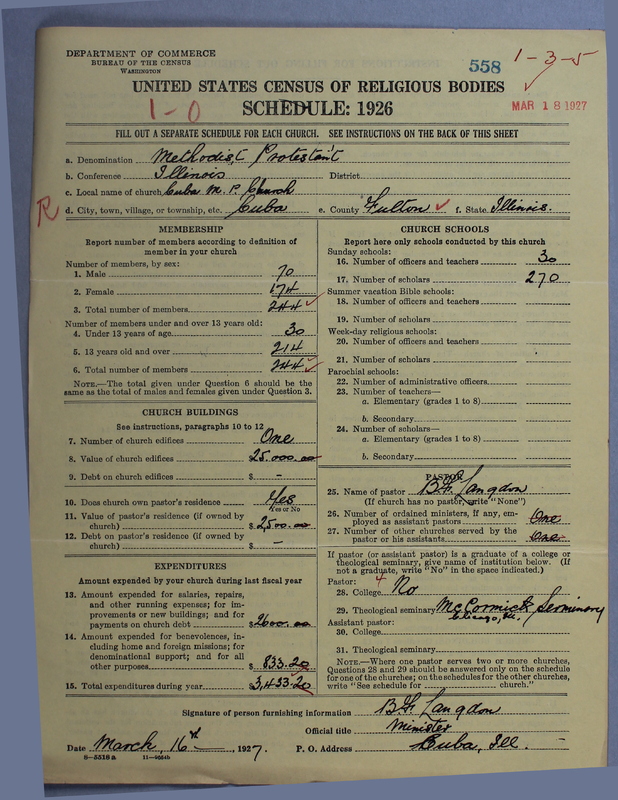 DEPARTMENT OF COMMERCE
BUREAU OF THE CENSUS
WASHINGTON
558
1-3-5
UNITED STATES CENSUS OF RELIGIOUS BODIES
1-0
SCHEDULE: 1926
MAR 18 1927
FILL OUT A SEPARATE SCHEDULE FOR EACH CHURCH. SEE INSTRUCTIONS ON THE BACK OF THIS SHEET
a. Denomination Methodist Protestant
b. Conference Illinois District
c. Local name of church Cuba M. P. Church
R
d. City, town, village, or township, etc. Cuba e. County Fulton f. State Illinois.
MEMBERSHIP
Report number of members according to definition of
member in your church
Number of members, by sex:
1. Male 70
2. Female 174
3. Total number of members 244
Number of members under and over 13 years old:
4. Under 13 years of age 30
5. 13 years old and over 214
6. Total number of members 244
NOTE.—The total given under Question 6 should be the
same as the total of males and females given under Question 3.
CHURCH BUILDINGS
See instructions, paragraphs 10 to 12
7. Number of church edifices One
8. Value of church edifices $25.000.00
9. Debt on church edifices $ -
10. Does church own pastor's residence Yes
Yes or No
11. Value of pastor's residence (if owned by
church) $2,500.00
12. Debt on pastor's residence (if owned by
church) $ -
EXPENDITURES
Amount expended by your church during last fiscal year
13. Amount expended for salaries, repairs,
and other running expenses; for im-
provements or new buildings; and for
payments on church debt $2600.00
14. Amount expended for benevolences, in-
cluding home and foreign missions; for
denominational support; and for all
other purposes $833.20
15. Total expenditures during year $3,433.20
CHURCH SCHOOLS
Report here only schools conducted by this church
Sunday schools:
16. Number of officers and teachers 30
17. Number of scholars 270
Summer vacation Bible schools:
18. Number of officers and teachers
19. Number of scholars
Week-day religious schools:
20. Number of officers and teachers
21. Number of scholars
Parochial schools:
22. Number of administrative officers
23. Number of teachers—
a. Elementary (grades 1 to 8)
b. Secondary
24. Number of scholars—
a. Elementary (grades 1 to 8)
b. Secondary
PASTOR
25. Name of pastor B.H. Langdon
(If church has no pastor, write "None")
26. Number of ordained ministers, if any, em-
ployed as assistant pastors One
27. Number of other churches served by the
pastor or his assistants One
If pastor (or assistant pastor) is a graduate of a college or
theological seminary, give name of institution below. (If
not a graduate, write "No" in the space indicated.)
Pastor: 4
28. College No
29. Theological seminary McCormick Seminary
Chicago, Ill.
Assistant pastor:
30. College
31. Theological seminary
NOTE.—Where one pastor serves two or more churches,
Questions 28 and 29 should be answered only on the schedule
for one of the churches; on the schedules for the other churches,
write "See schedule for church."
Signature of person furnishing information B.H. Langdon
Official title Minister
Date March, 16th, 1927. P. O. Address Cuba, Ill.
8-5518a